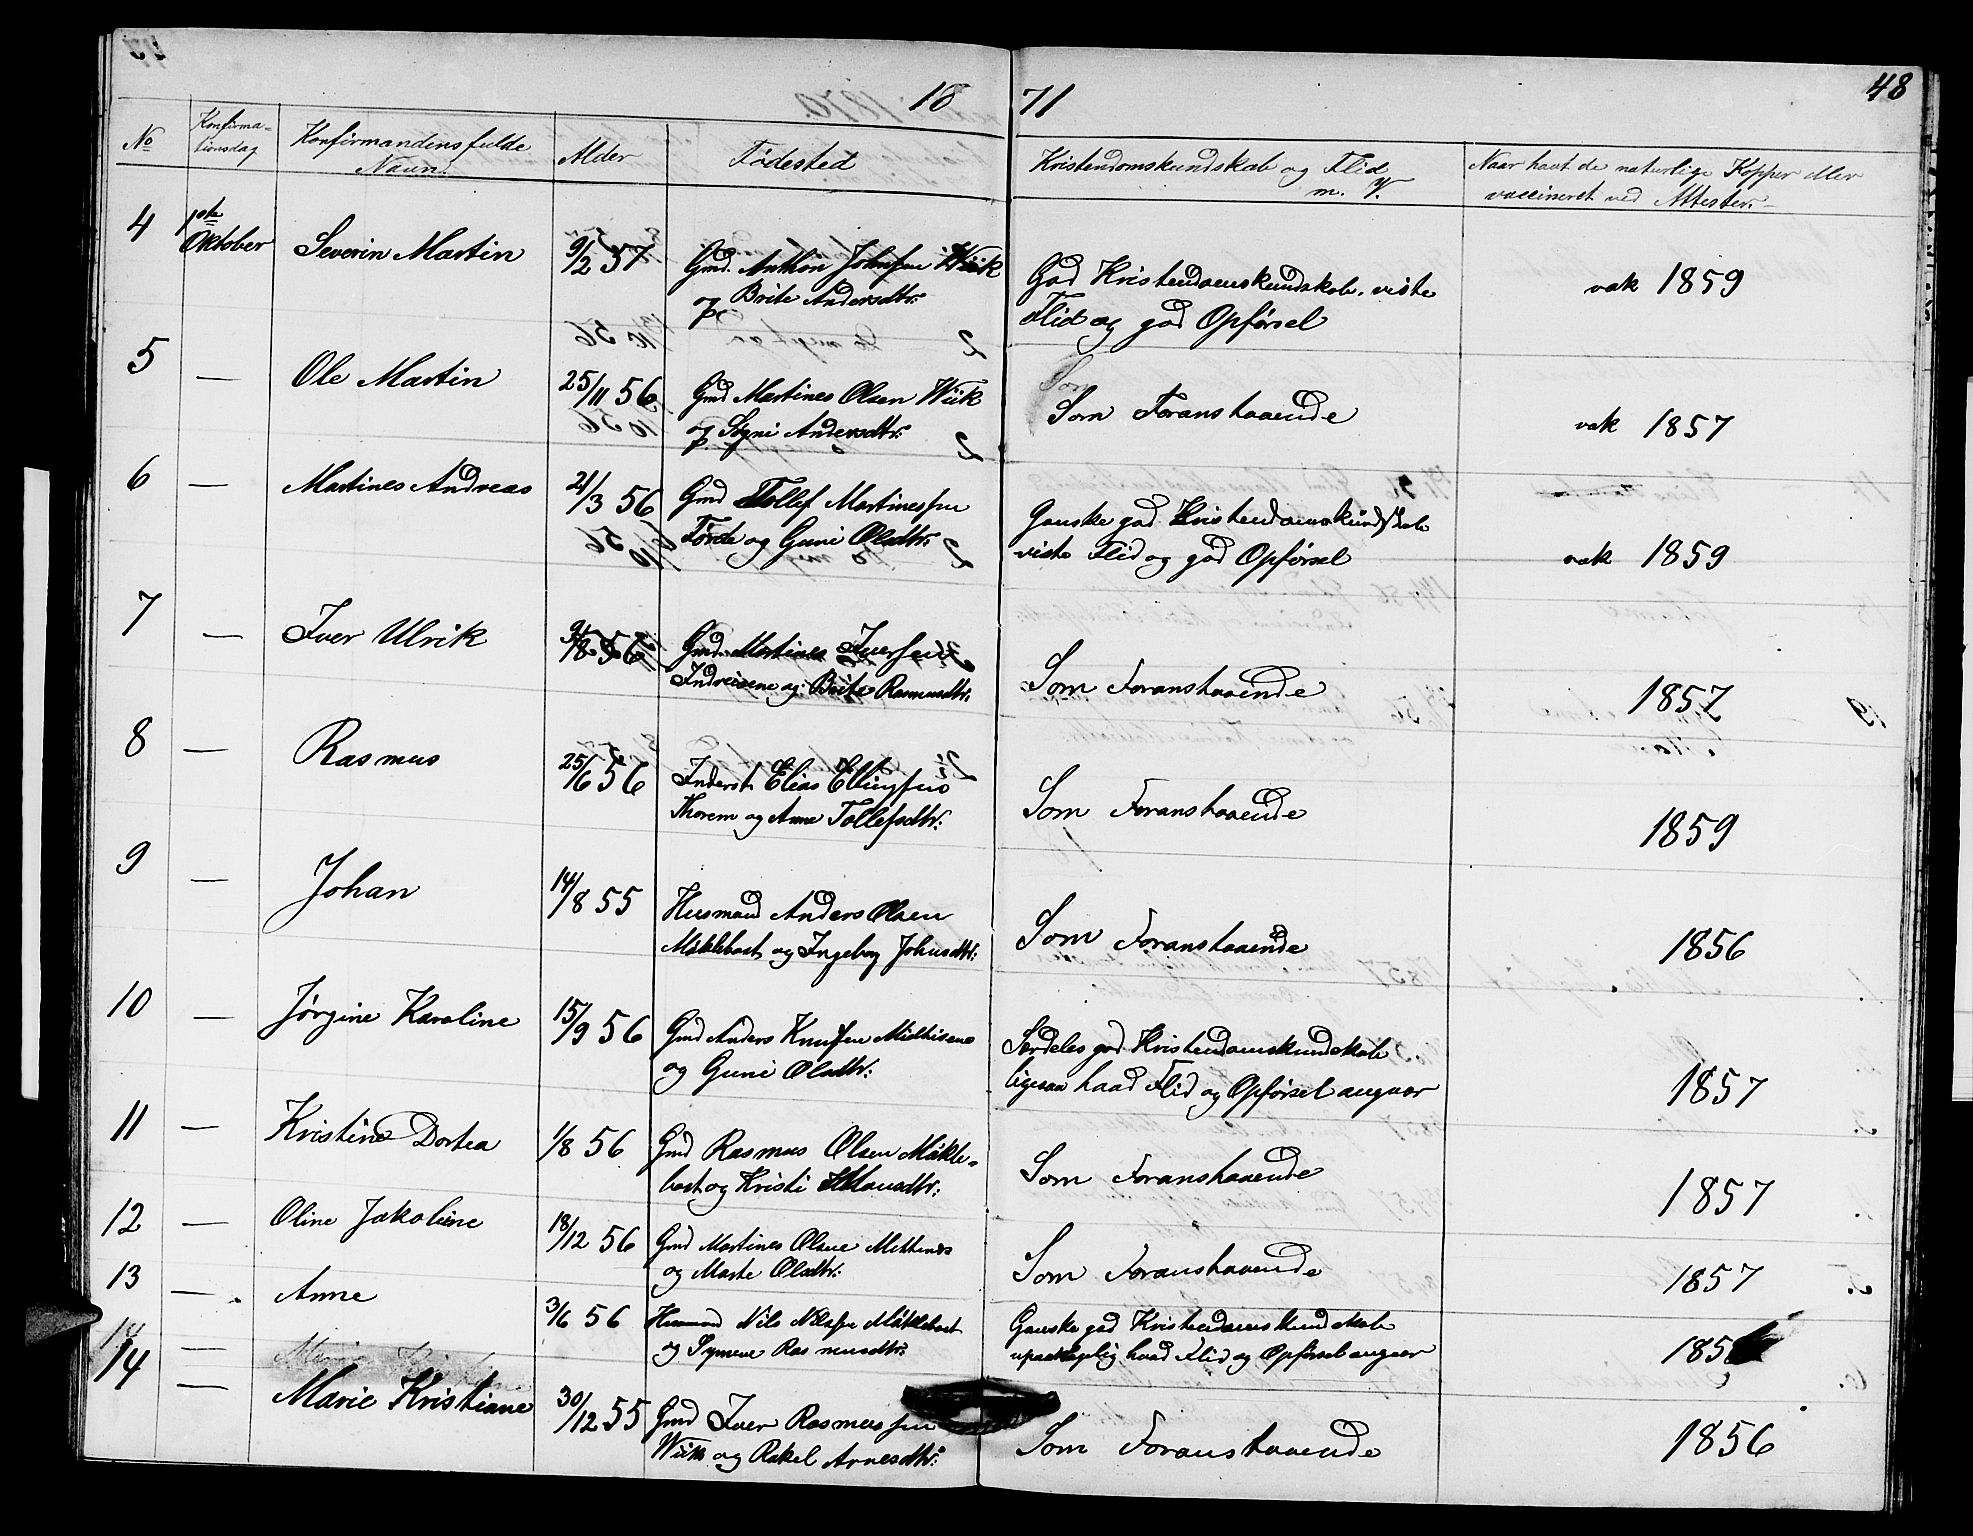 18 71 48
No Konfirma= tionsdag Konfirmandens fulde Navn Alder Fødested Kristendomskundskab og Flid m. V. Naar havt de naturlige Kopper eller vaccineret ved Attester.
4 1ste Oktober Severin Martin 9/2 57 Gmd. Anthon Johnsen Wiik
og Brite Andersdtr:
God Kristendomskundskab, viste
Flid og god Opførsel
vak 1859
5 — Ole Martin 25/11 56 Gmd Martines Olsen Wiik
og Søgni Andersdtr:
Som Foranstaaende
vak 1857
6 — Martines Andreas 21/3 56 Gmd Tollef Martinessen
Førde og Guni Olsdtr:
Ganske god Kristendomskundskab
viste Flid og god Opførsel
vak 1859
7 — Iver Ulrik /8 56 Gmd. Martines Iversen
Indreisene og Brite Rasmusdtr:
Som Foranstaaende
1857
8 — Rasmus 25/6 56 Inderst Elias Ellingsen
Thorem og Anne Tollefsdtr:
Som Foranstaaende
1859
9 — Johan 14/8 55 Husmand Anders Olsen
Møklebost og Ingeborg Johnsdtr:
Som Foranstaaende
1856
10 — Jørgine Karoline 15/9 56 Gmd Anders Knutsen
og Guni Olsdtr:
Særdeles god Kristendomskundskab
ligesaa hvad Flid og Opførsel angaar
1857
11 — Kristine Dortea 1/8 56 Gmd Rasmus Olsen Møkle=
bost og Kristi
Som Foranstaaende
1857
12 — Oline Jakobine 18/12 56 Gmd Martines Olsen
og Marte Olsdtr:
Som Foranstaaende
1857
13 — Anne 3/6 56 Husmand Nils Nilssen Møklebost
og Synneve Rasmusdtr:
Ganske god Kristendomskundskab
upaaklagelig, hvad Flid og Opførsel angaar
185
14 —
14 — Marie Kristiane 30/12 55 Gmd Iver Rasmussen
Wiik og Rakel Arnesdtr:
Som Foranstaaende
1856